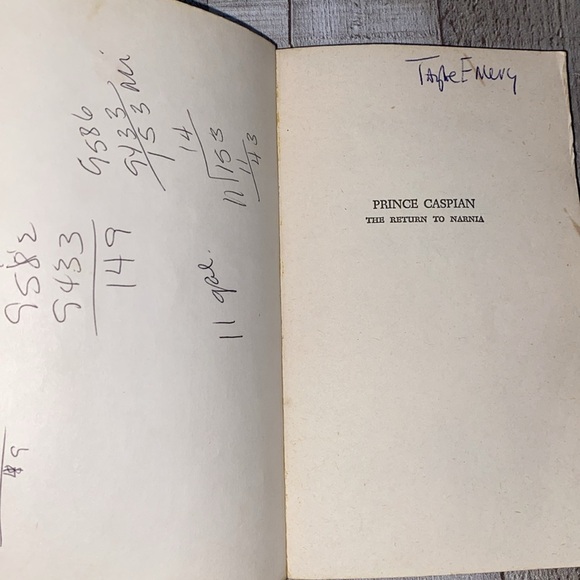 9582
9433
149
9586
9433
153 mi
14
11 153
11
43
11 gal.
Emery
PRINCE CASPIAN
THE RETURN TO NARNIA